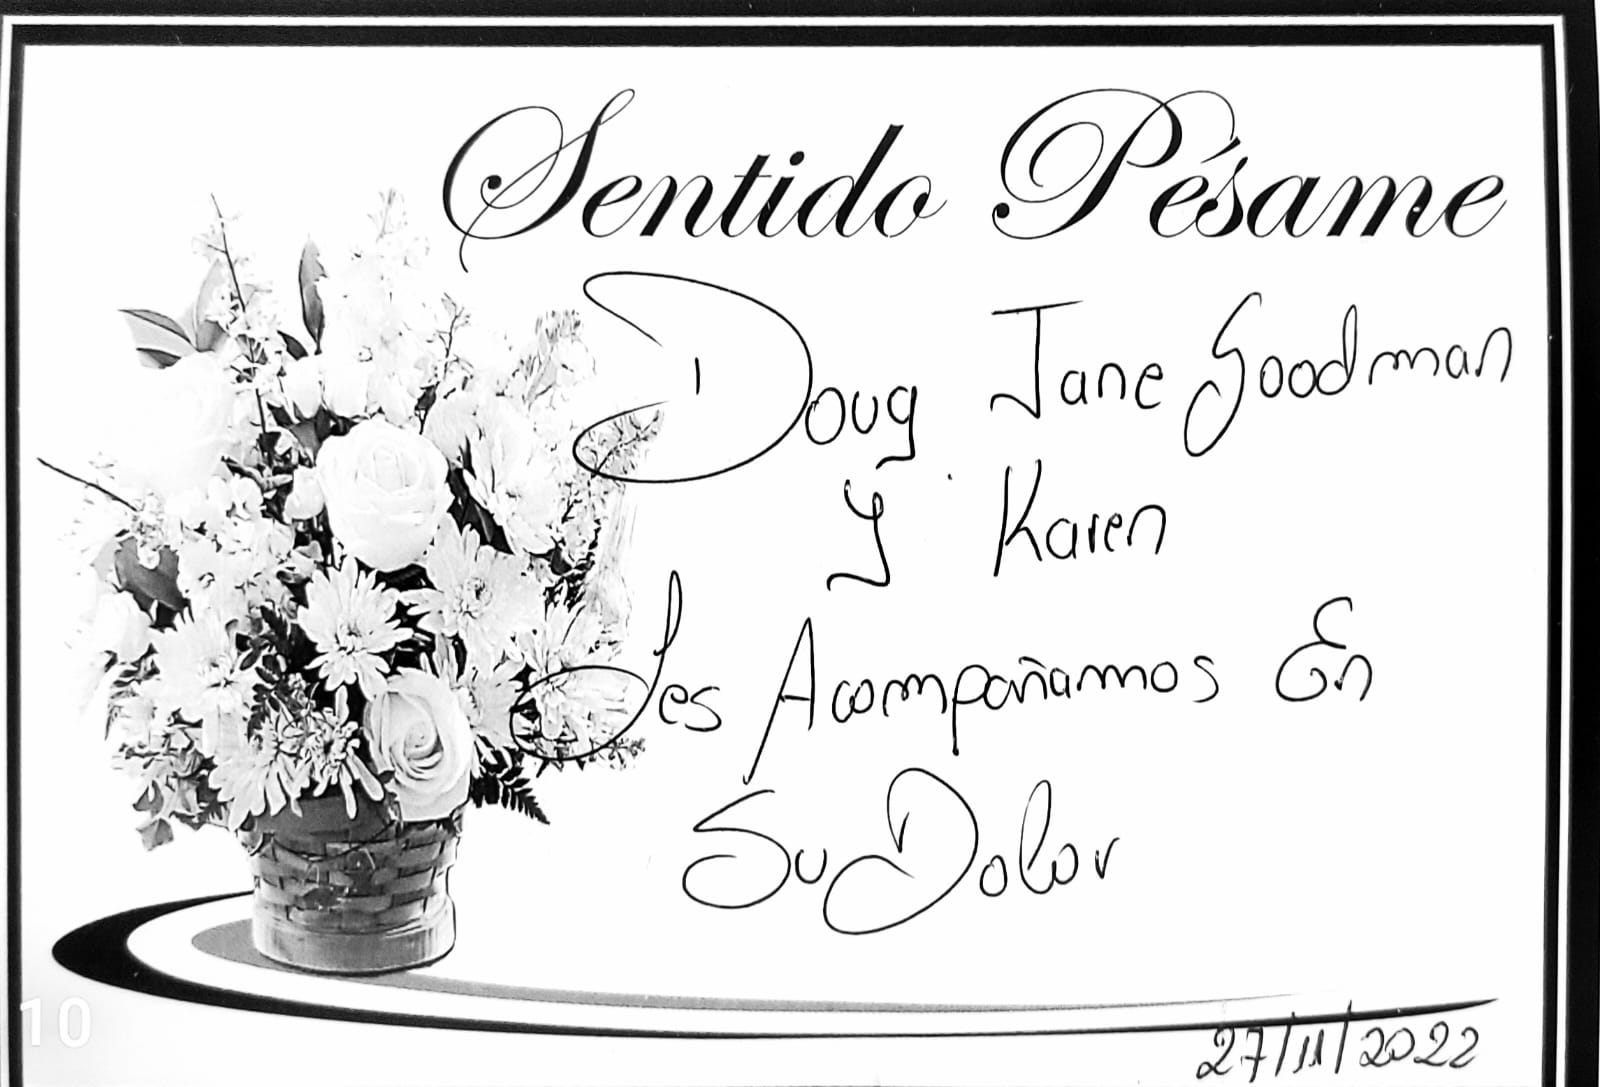 Sentido Pésame
Doug Jane Goodman
Y Karen
Les Acompañamos En
Su Dolor
27/11/2022
10